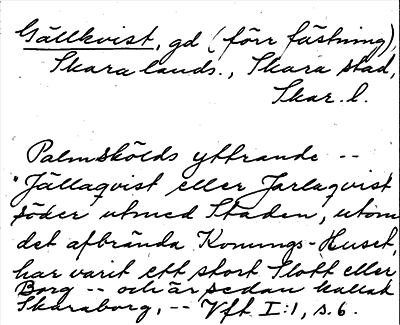 Gällkvist, gd (förr fästning),
Skara lands., Skara stad,
Skar. l.
Palmskölds yttrande --
"Jällaqvist eller Jarlaqvist
söder utmed Staden, utom
det afbrända Konungs-Huset,
har varit ett stort Slott eller
Borg -- och är sedan kallat
Skaraborg, -- Vft I:1, s. 6.